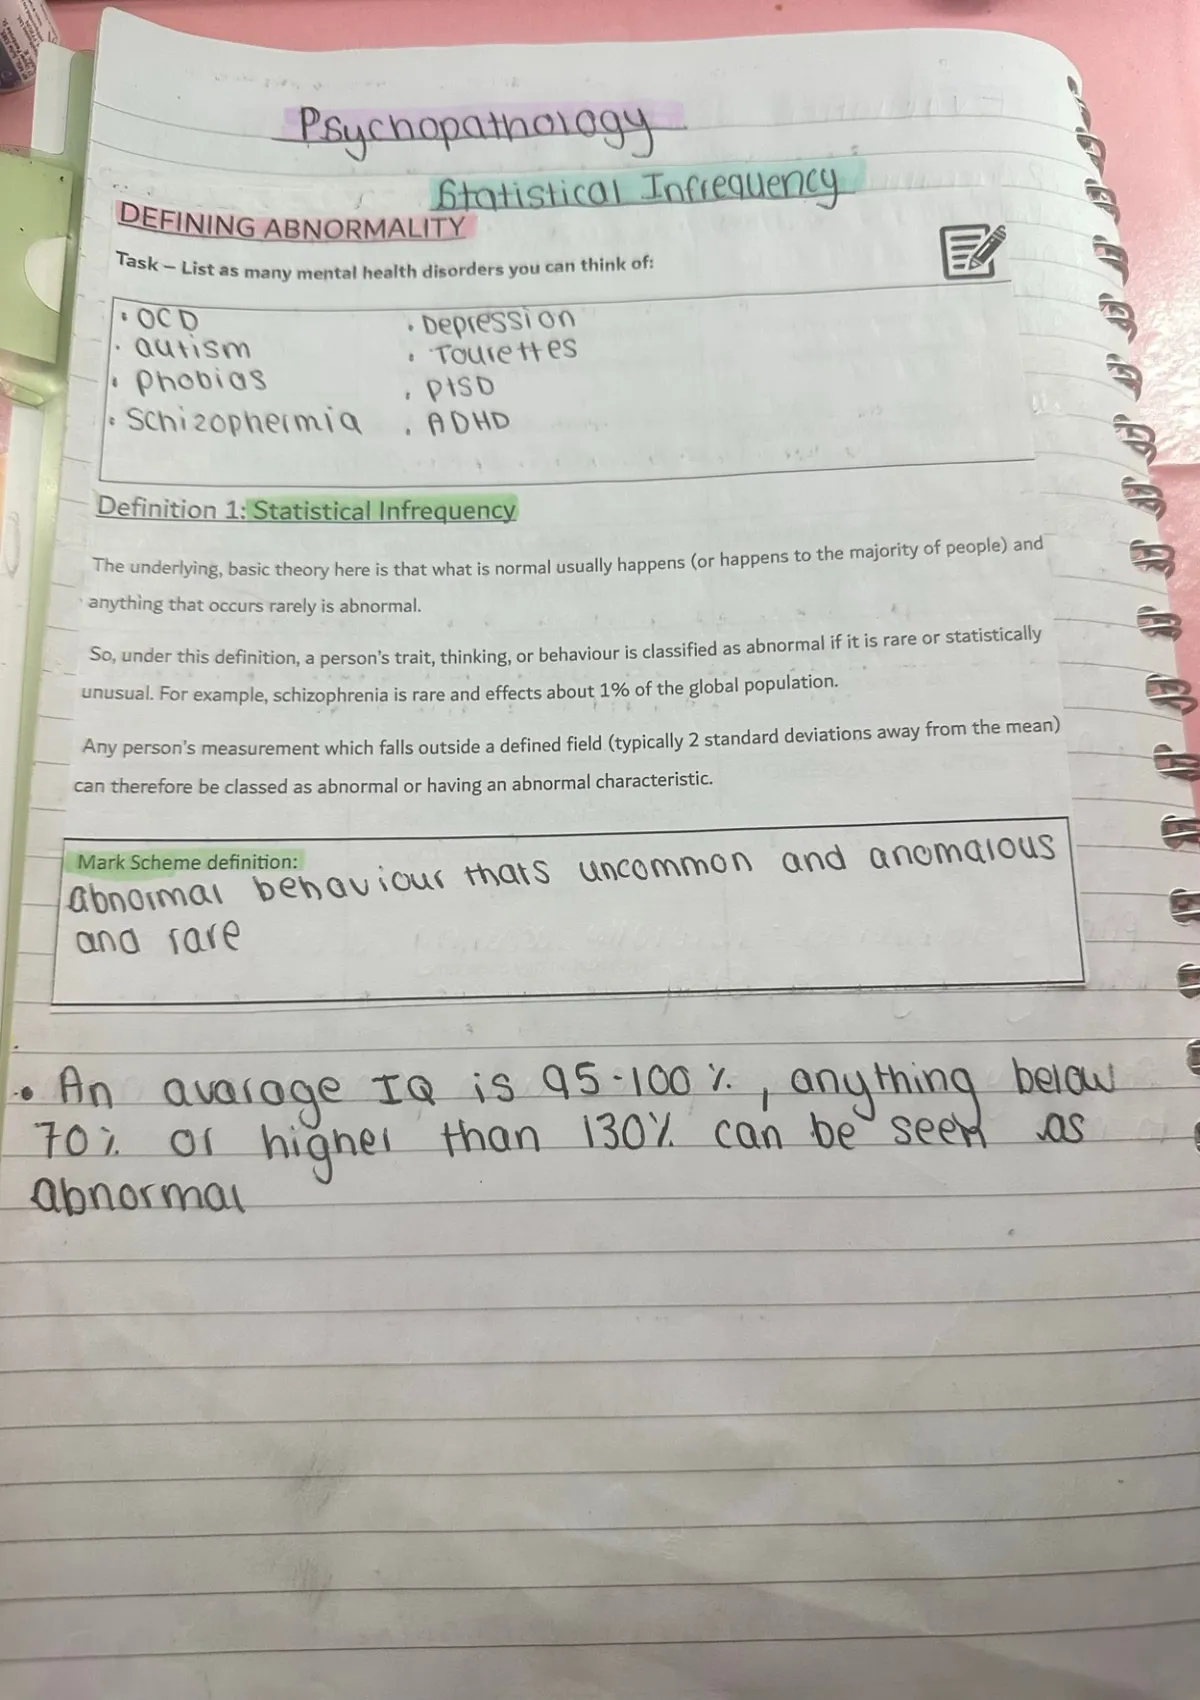 Psychopathology
Statistical Infrequency
DEFINING ABNORMALITY
Task – List as many mental health disorders you can think of:
• OCD • Depression
• autism • Tourettes
• Phobias • PtSD
• Schizophermia • ADHD
Definition 1: Statistical Infrequency
The underlying, basic theory here is that what is normal usually happens (or happens to the majority of people) and
anything that occurs rarely is abnormal.
So, under this definition, a person's trait, thinking, or behaviour is classified as abnormal if it is rare or statistically
unusual. For example, schizophrenia is rare and effects about 1% of the global population.
Any person's measurement which falls outside a defined field (typically 2 standard deviations away from the mean)
can therefore be classed as abnormal or having an abnormal characteristic.
Mark Scheme definition:
abnormal behaviour thats uncommon and anomalous
and rare
• An avarage IQ is 95-100%, anything below
70% or higher than 130% can be seen as
abnormal